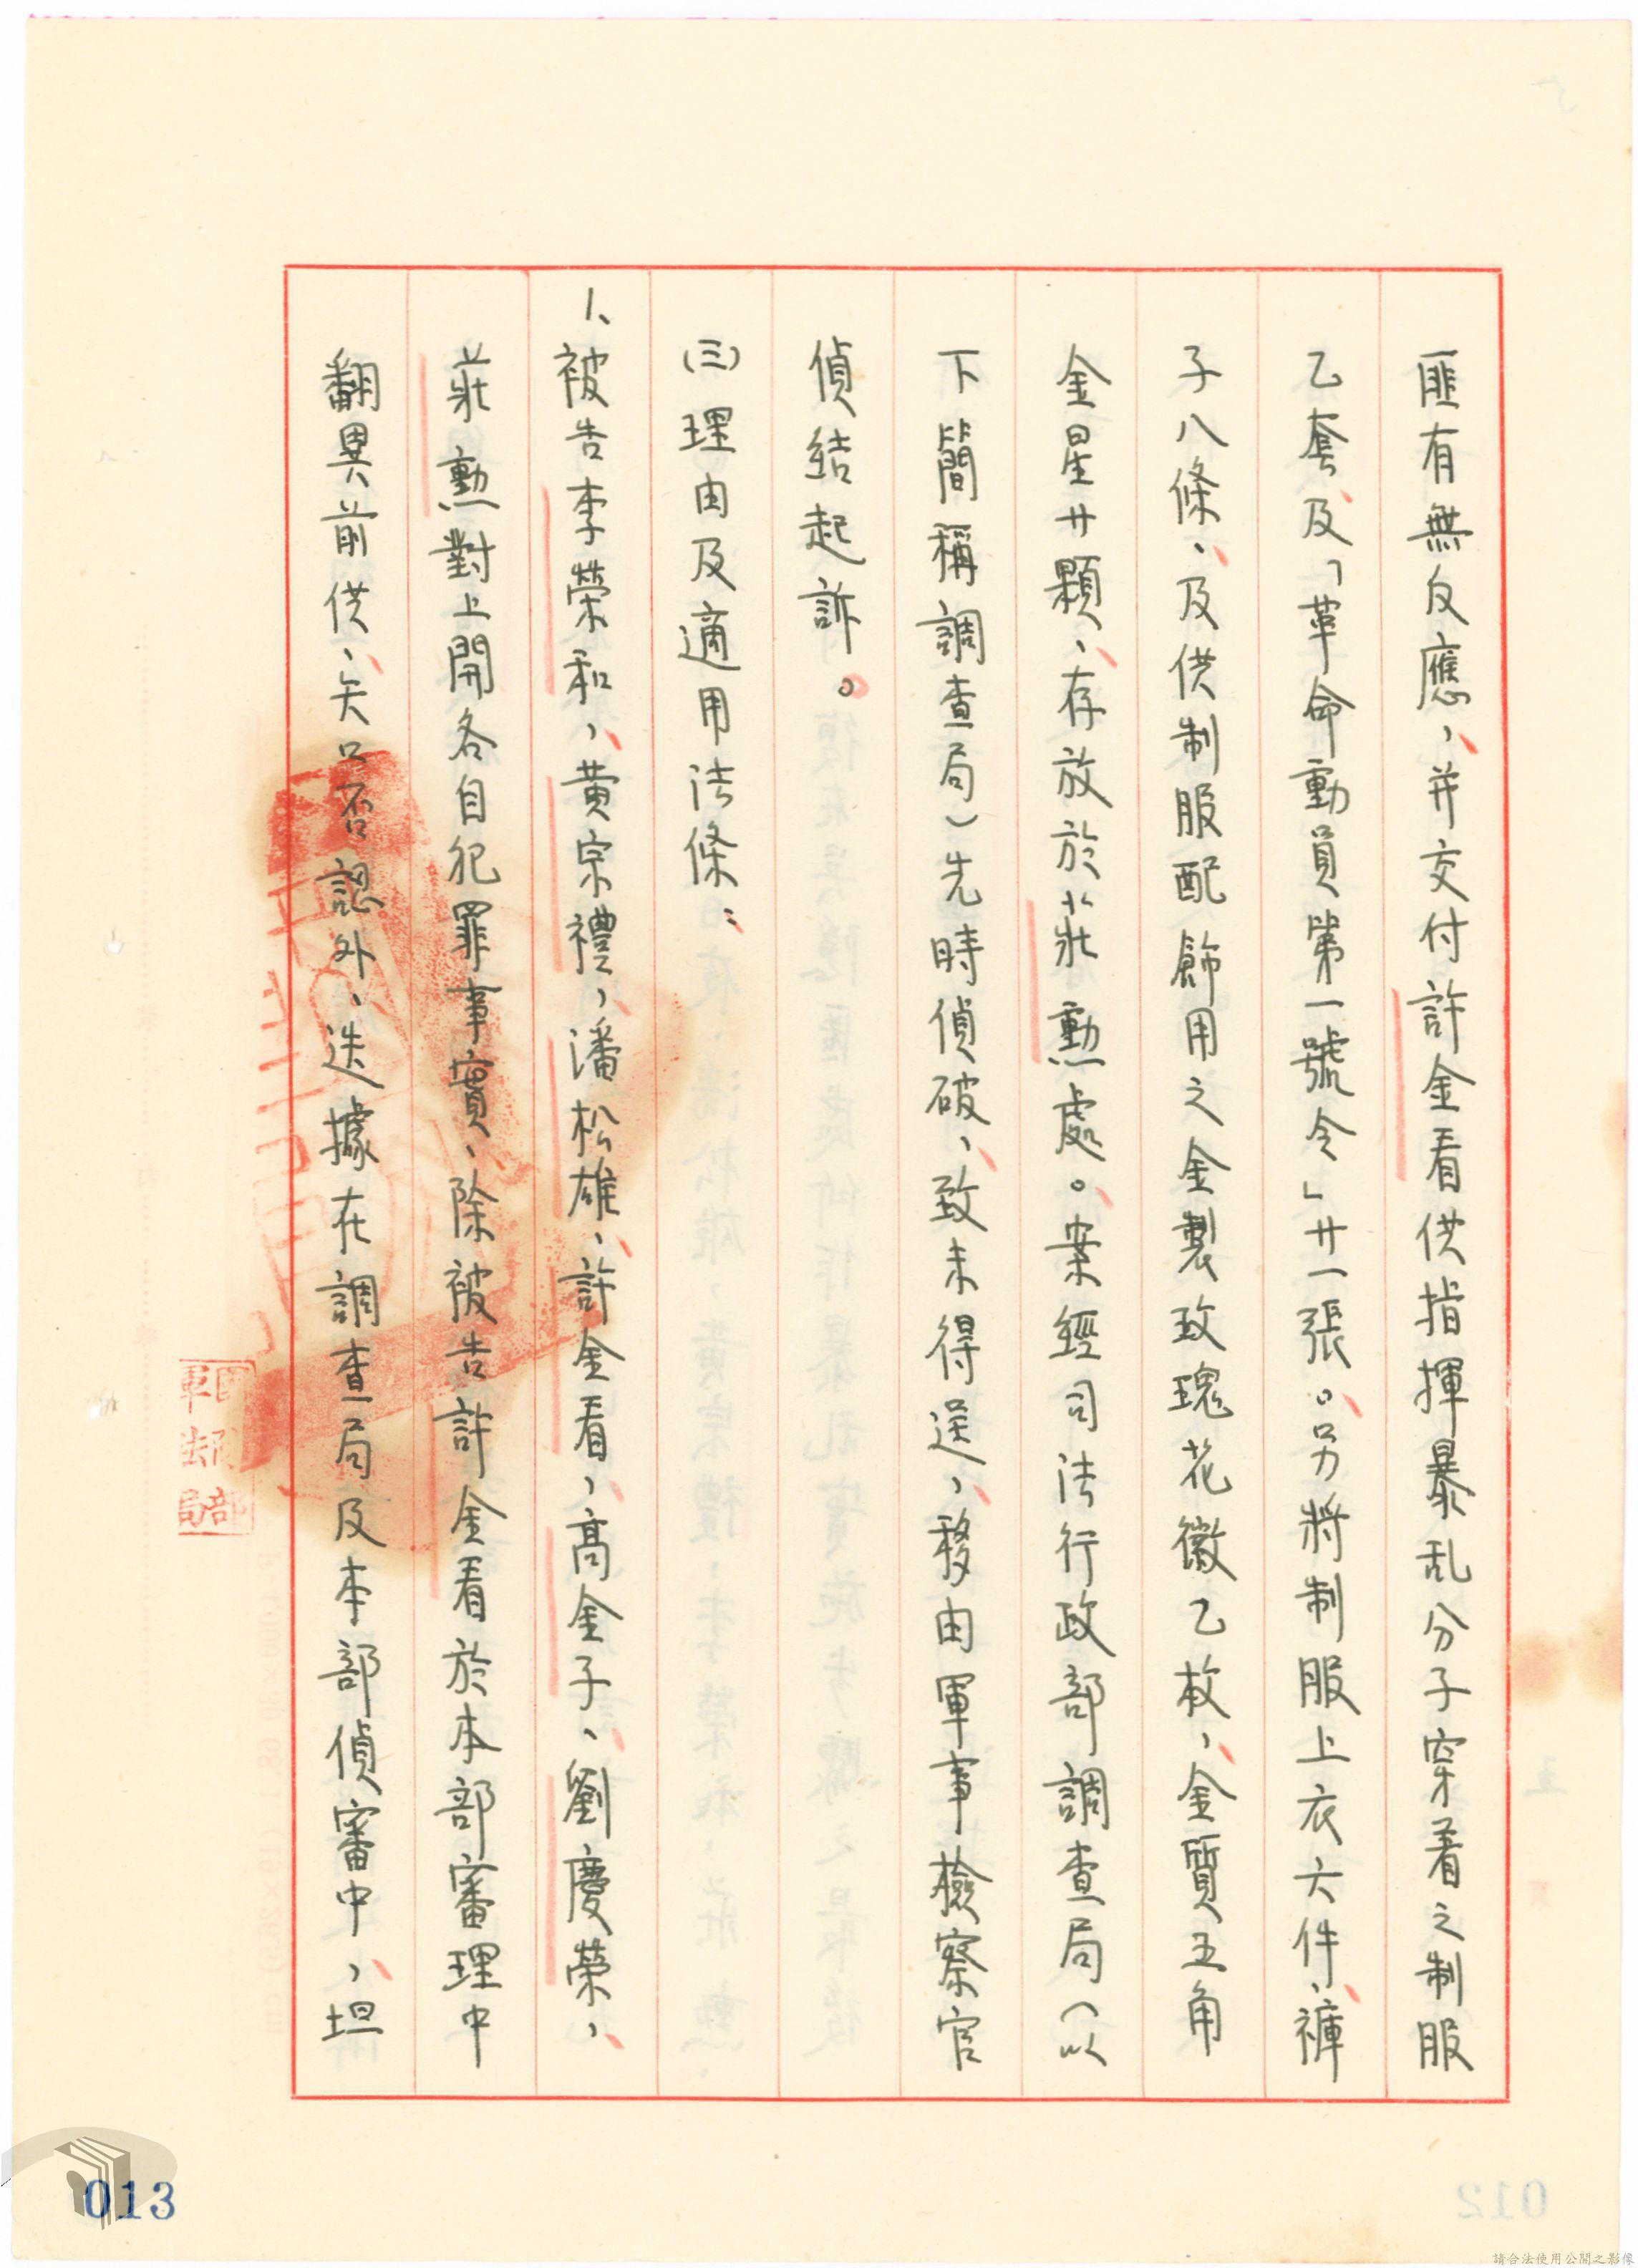 匪有無反應，并交付許金看供指揮暴乱分子穿着之制服
乙套、及「革命動員第一號令」廿一張。另將制服上衣六件、褲
子八條、及供制服配飾用之金製玫瑰花徽乙枚，金質五角
金星廿顆，存放於莊勳處。案經司法行政部調查局（以
下簡稱調查局）先時偵破，致未得逞，移由軍事檢察官
偵結起訴。
(三)理由及適用法條：
1、被告李榮和，黃宗禮，潘松雄，許金看，高金子、劉慶榮，
莊勳對上開各自犯罪事實，除被告許金看於本部審理中
翻異前供，矢口否認外，迭據在調查局及本部偵審中，坦
國防部
軍法局
013
請合法使用公開之影像